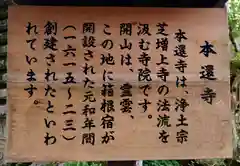 本還寺
本還寺は、浄土宗
芝増上寺の法流を
汲む寺院です。
開山は、霊雲、
この地に箱根宿が
開設された元和年間
（一六一五〜二三）
創建されたといわ
れています。